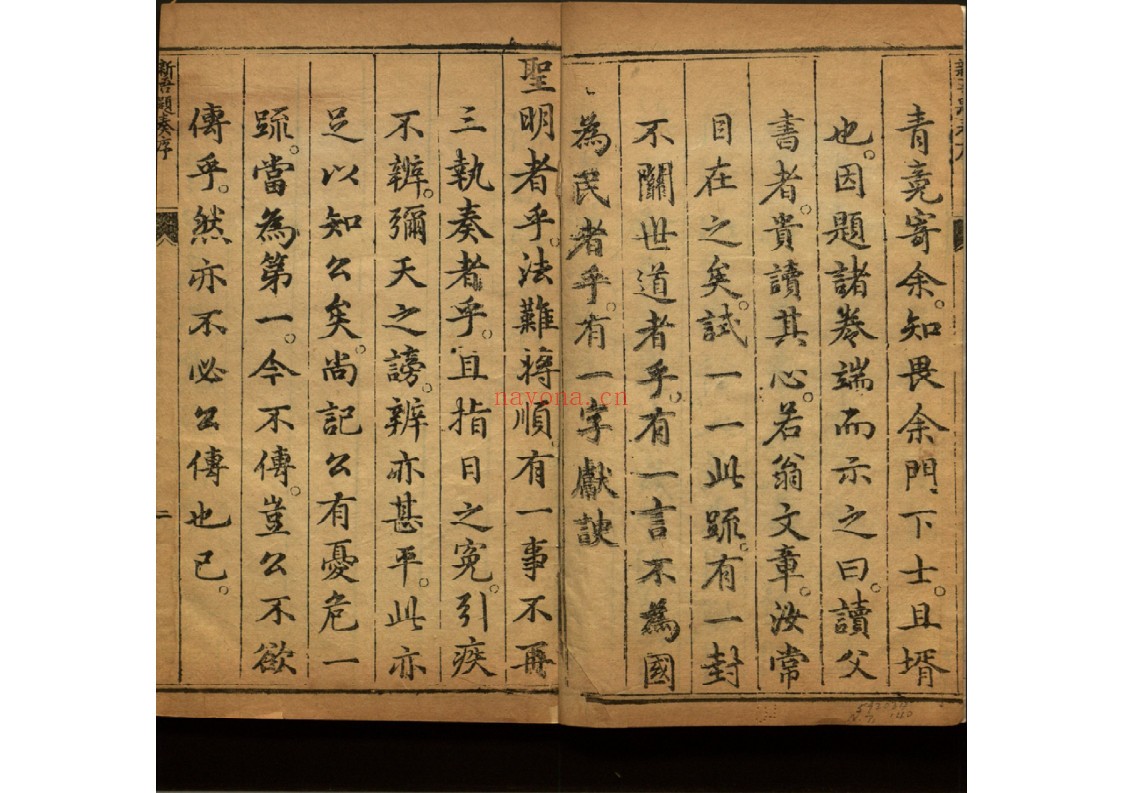 青竟寄余。知畏余門下士。且壻
也。因題諸卷端而示之曰。讀父
書者。貴讀其心。若翁文章。汝常
目在之矣。試一一此疏。有一封
不關世道者乎。有一言不為國
為民者乎。有一字獻諛
聖明者乎。法難將順有一事不再
三執奏者乎。直指日之寃。引疾
不辨。彌天之謗。辨亦甚平。此亦
足以知公矣。尚記公有憂危一
疏。當為第一。今不傳。豈公不欲
傳乎。然亦不必公傳也已。
新吾題奏序
二
nayona.cn